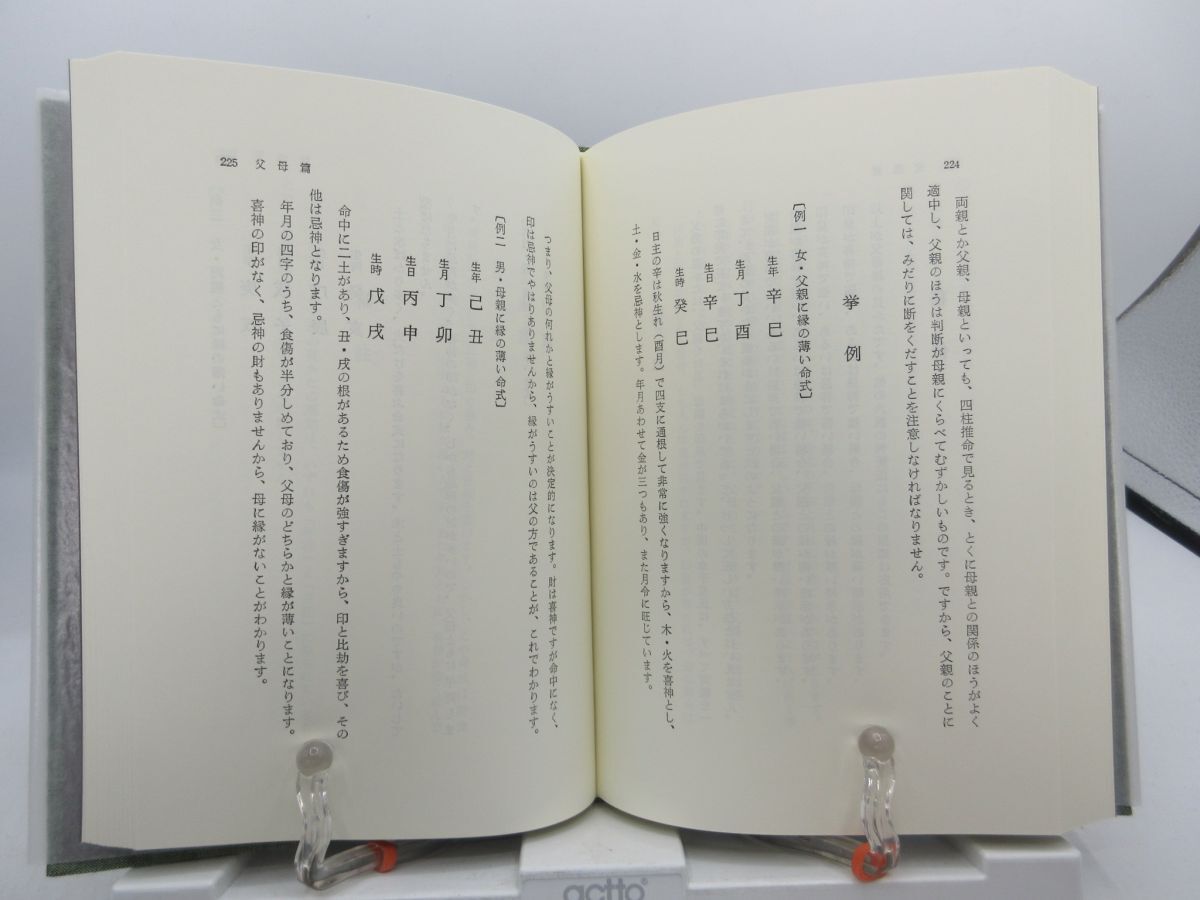 224
両親とか父親、母親といっても、四柱推命で見るとき、とくに母親との関係のほうがよく
適中し、父親のほうは判断が母親にくらべてむずかしいものです。ですから、父親のことに
関しては、みだりに断をくだすことを注意しなければなりません。
挙例
〔例一 女・父親に縁の薄い命式〕
生年 辛巳
生月 丁酉
生日 辛巳
生時 癸巳
日主の辛は秋生れ（酉月）で四支に通根して非常に強くなりますから、木・火を喜神とし、
土・金・水を忌神とします。年月あわせて金が三つもあり、また月令に旺じています。
225 父母篇
つまり、父母の何れかと縁がうすいことが決定的になります。財は喜神ですが命中になく、
印は忌神でやはりありませんから、縁がうすいのは父の方であることが、これでわかります。
〔例二 男・母親に縁の薄い命式〕
生年 己丑
生月 丁卯
生日 丙申
生時 戊戌
命中に二土があり、丑・戌の根があるため食傷が強すぎますから、印と比劫を喜び、その
他は忌神となります。
年月の四字のうち、食傷が半分しめており、父母のどちらかと縁が薄いことになります。
喜神の印がなく、忌神の財もありませんから、母に縁がないことがわかります。
actto